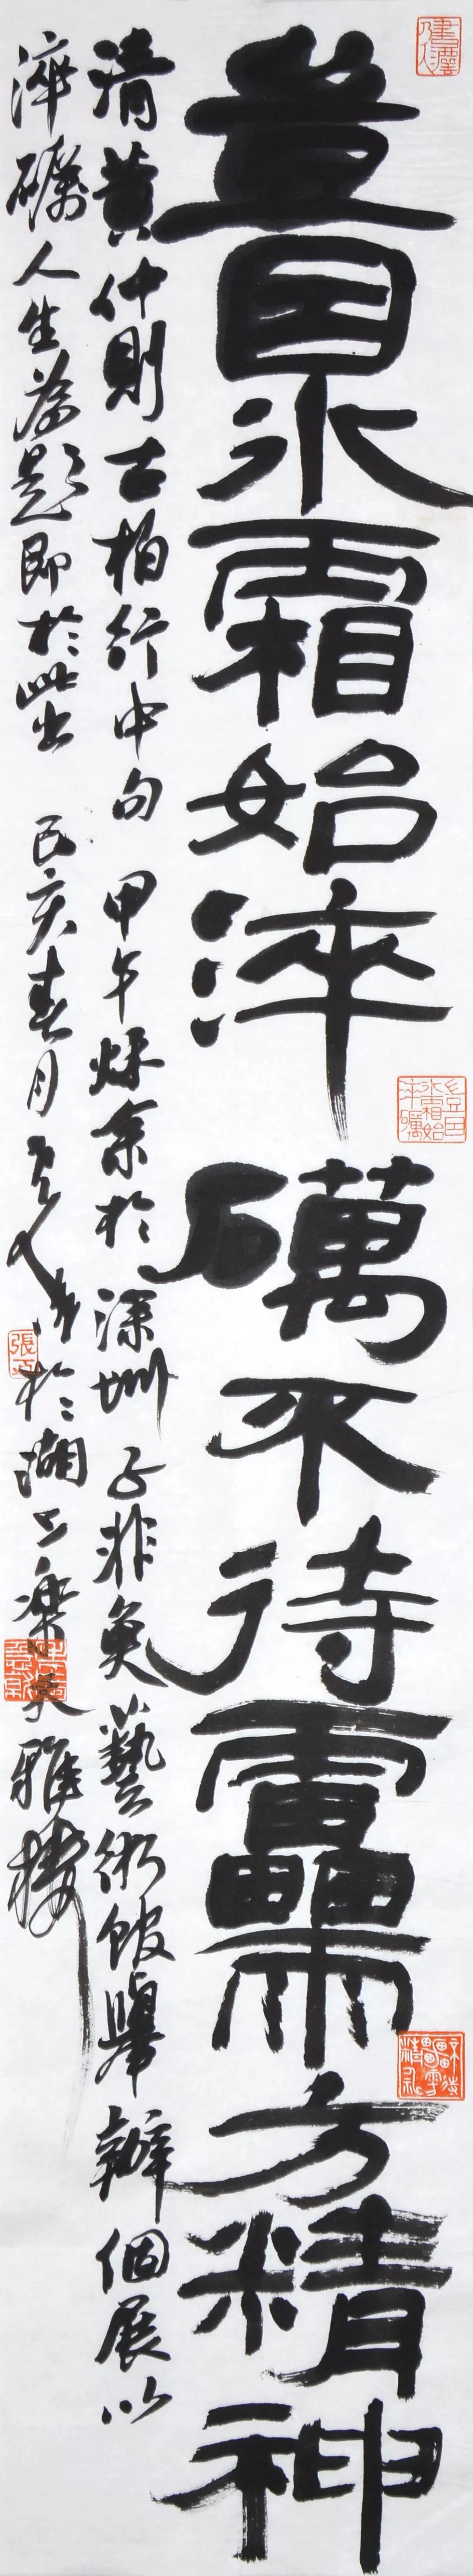 豈因冰霜始淬礪不待靁雨方精神
清黄仲則古柏行中句 甲午秌余於深圳子非魚藝術館舉辦個展以
淬礪人生為題即於此出 己亥春月 於湖上樂天雅樓